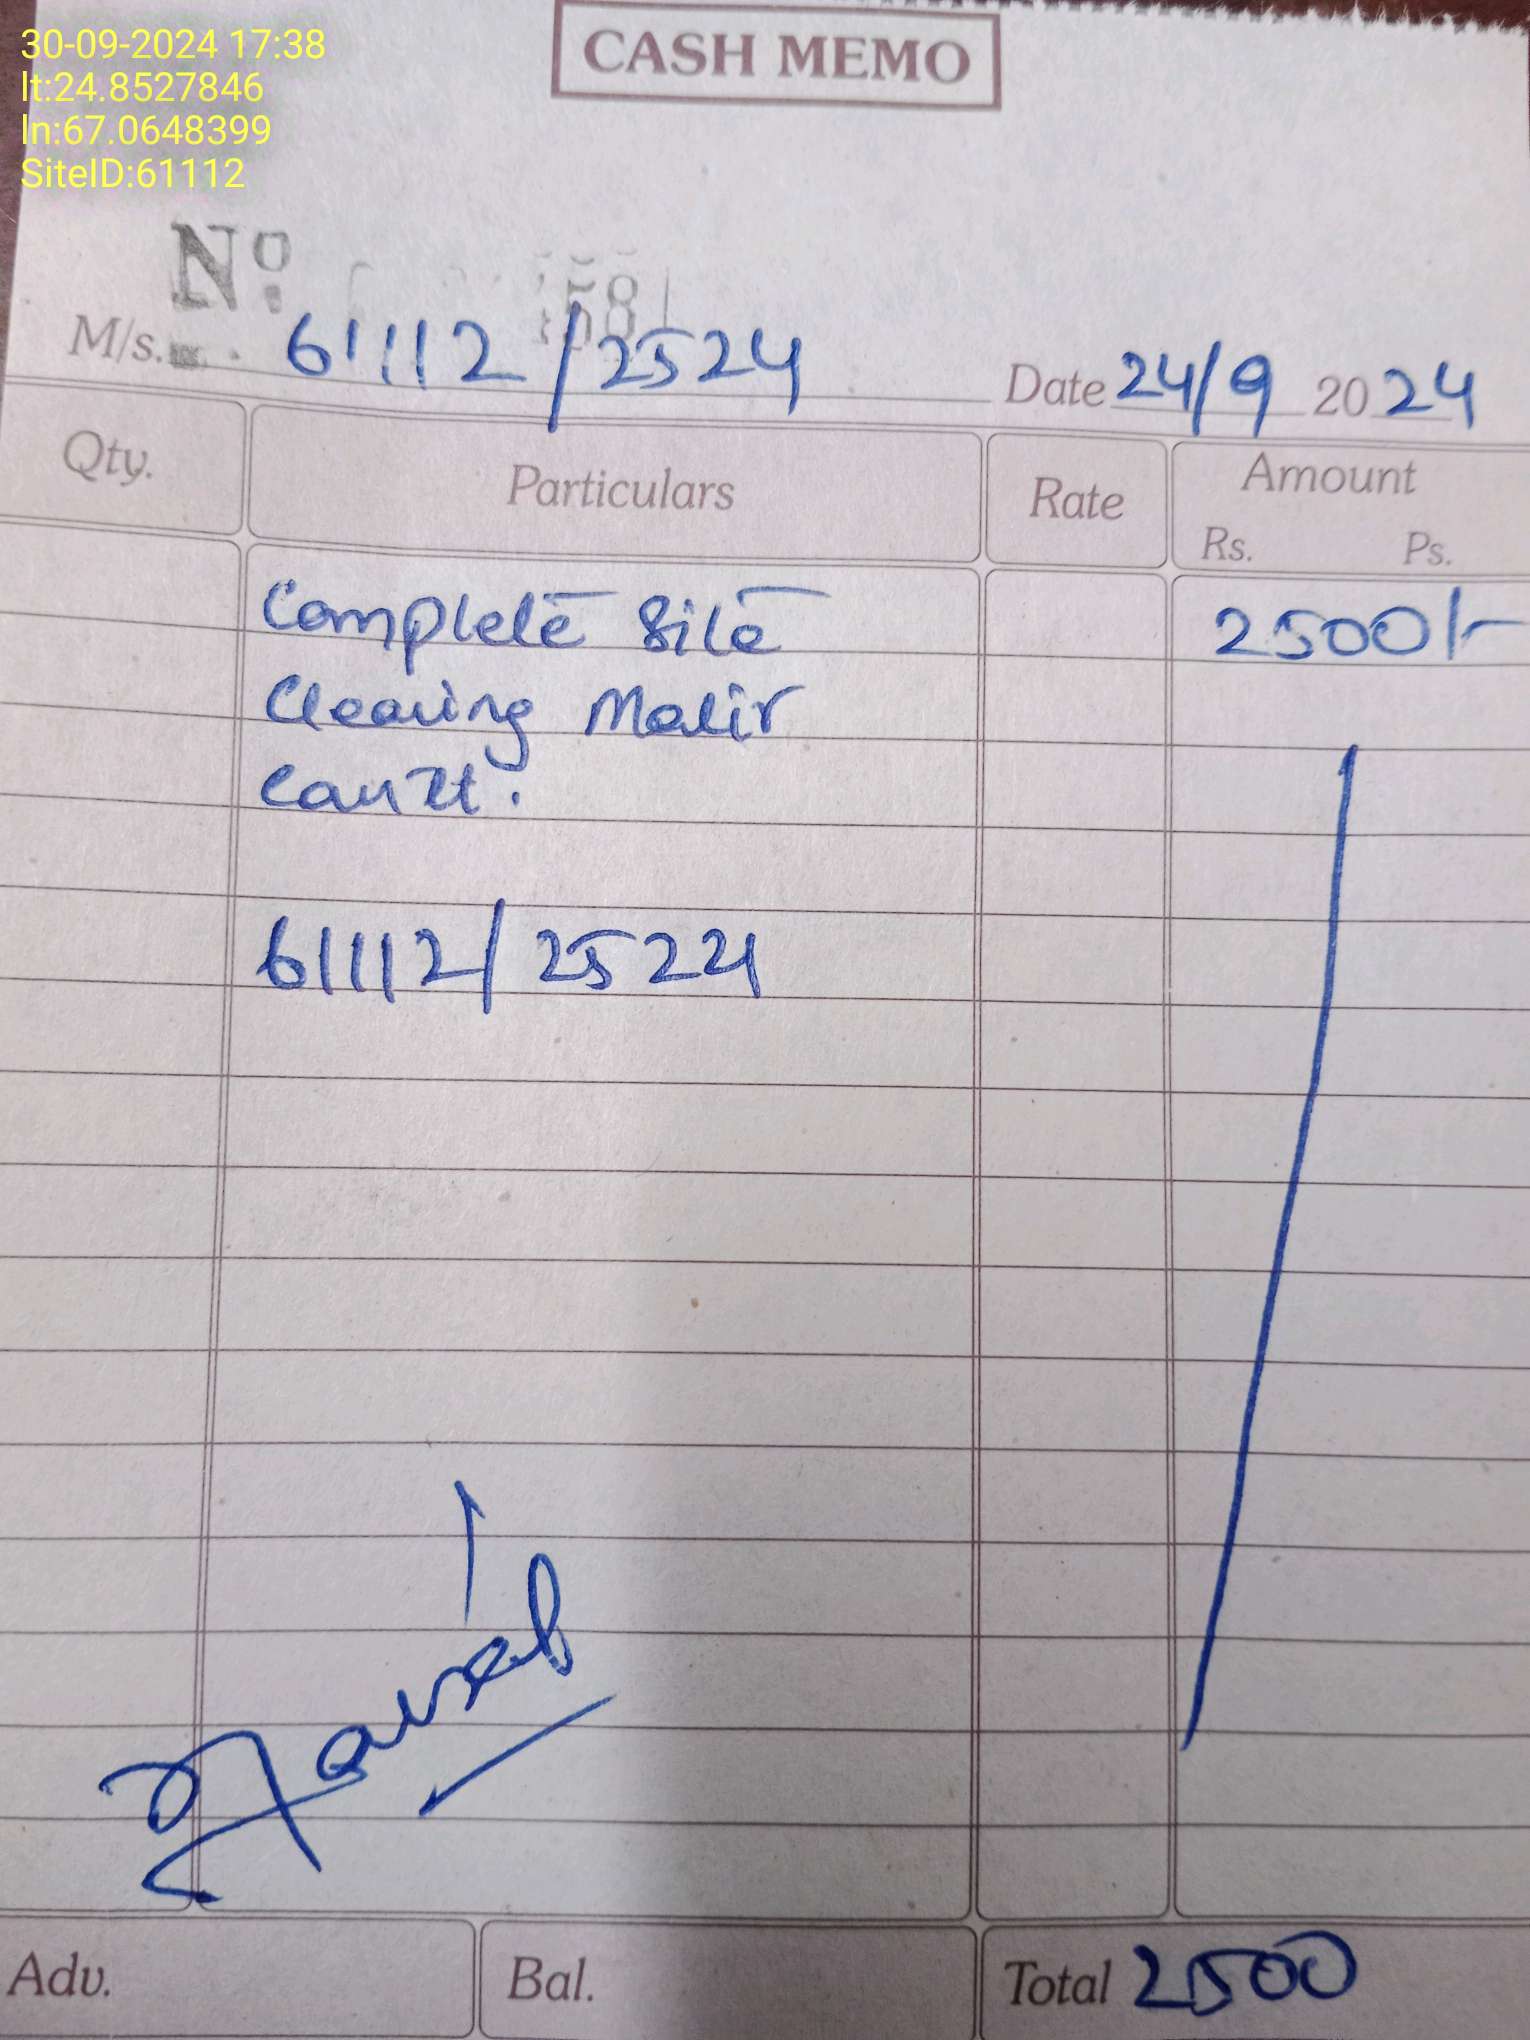 30-09-2024 17:38
lt:24.8527846
ln:67.0648399
SiteID:61112
CASH MEMO
Nº
M/s. 61112/2524
Date 24/9 2024
Qty. Particulars Rate Amount
Rs. Ps.
Complete Site 2500/-
Cleaning Malir
Cantt.
61112/2524
Adv. Bal. Total 2500